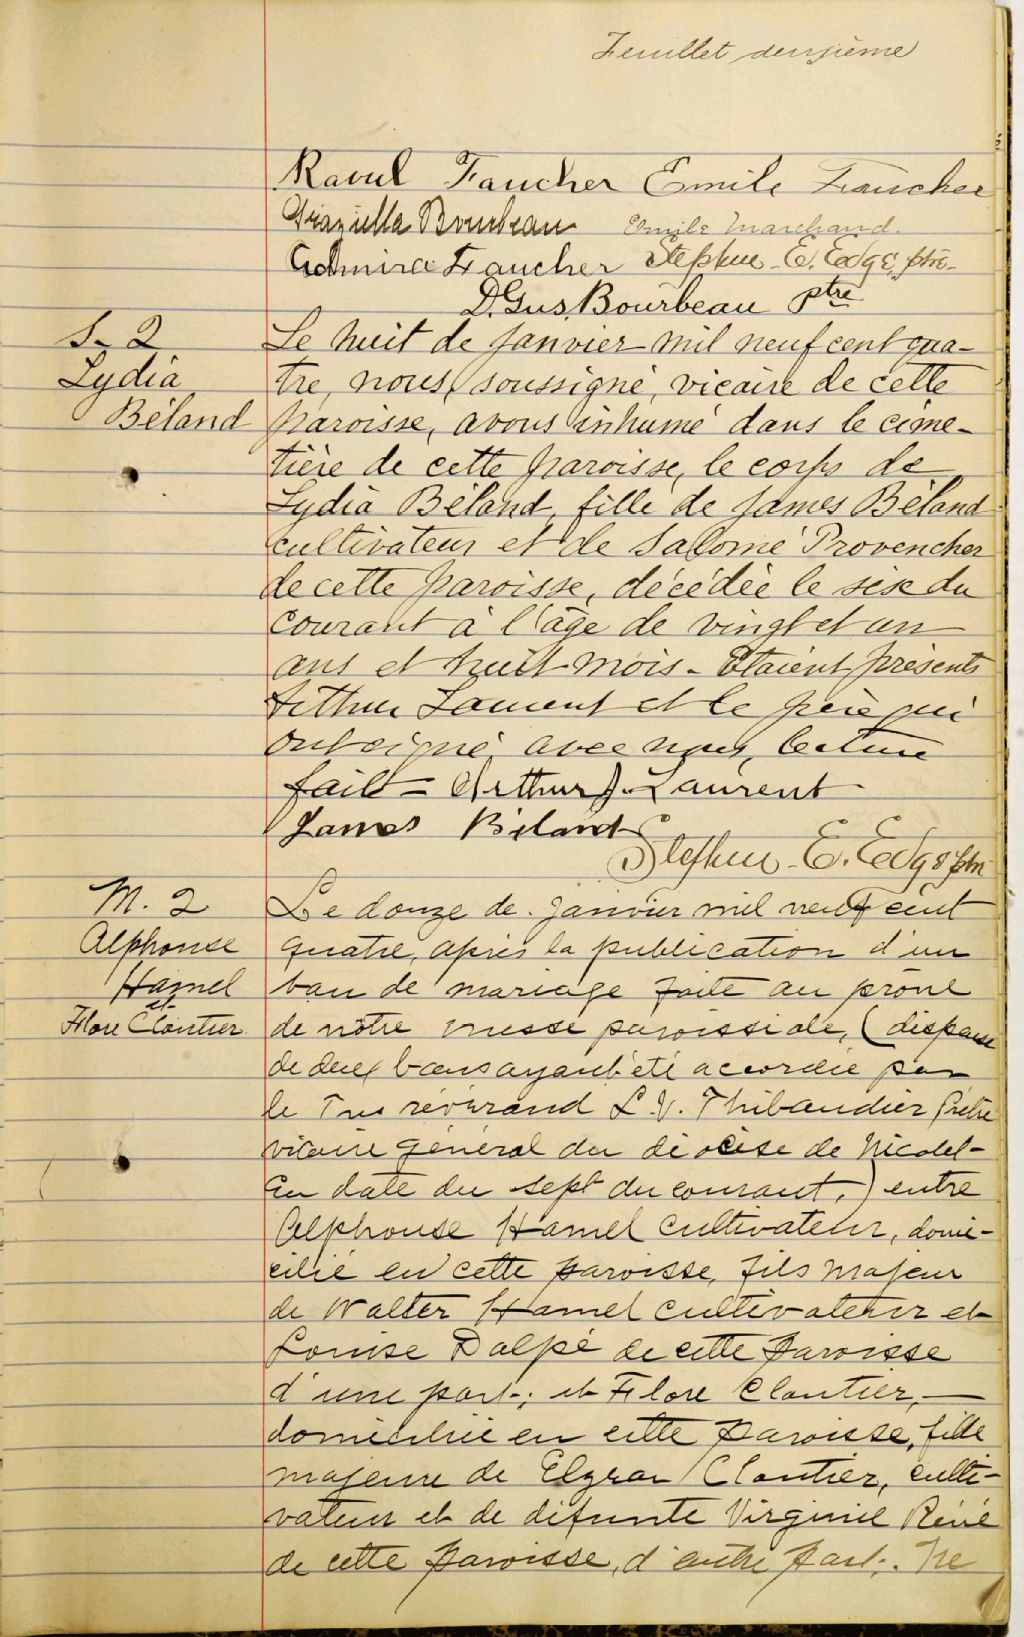 Feuillet deuxième
Raoul Faucher Emile Faucher
Graziella Bourbeau Emile Marchand.
Admira Faucher Stephen E. Edge ptre-
D. Gus. Bourbeau ptre
S-2
Lydia
Béland
Le huit de janvier mil neuf cent qua-
tre, nous, soussigné, vicaire de cette
paroisse, avons inhumé dans le cime-
tière de cette paroisse, le corps de
Lydia Béland, fille de James Béland
cultivateur et de Salomé Provencher
de cette paroisse, décédée le six du
courant à l'âge de vingt et un
ans et huit mois - Etaient présents
Arthur Laurent et le père qui
ont signé avec nous, lecture
fait = Arthur J. Laurent
James Béland
Stephen E. Edge ptre
M. 2
Alphonse
Hamel
et
Flore Cloutier
Le douze de janvier mil neuf cent
quatre, après la publication d'un
ban de mariage faite au prône
de nôtre messe paroissiale, (dispense
de deux bans ayant été accordée par
le Très révérand L. V. Thibaudier Prêtre
vicaire général du diocèse de Nicolet-
En date du sept du courant,) entre
Alphonse Hamel cultivateur, domi-
cilié en cette paroisse, fils majeur
de Walter Hamel cultivateur et
Louise Dalpé de cette paroisse
d'une part; et Flore Cloutier,-
domiciliée en cette paroisse, fille
majeure de Elzear Cloutier, culti-
vateur et de défunte Virginie Réné
de cette paroisse, d'autre part;. Ne